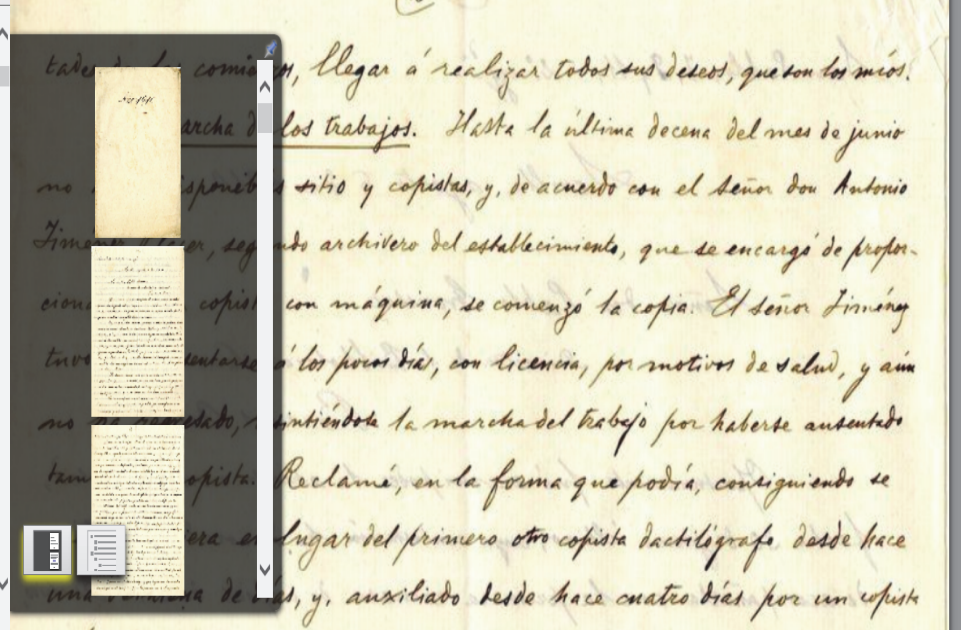 tades de los comienzos, llegar á realizar todos sus deseos, que son los míos.
Marcha de los trabajos. Hasta la última decena del mes de junio
no disponibles sitio y copistas, y, de acuerdo con el señor don Antonio
Jiménez segundo archivero del establecimiento, que se encargó de propor-
cionar copista con máquina, se comenzó la copia. El señor Jiménez
tuvo ausentarse á los pocos días, con licencia, por motivos de salud, y aún
no ha regresado, resintiéndose la marcha del trabajo por haberse ausentado
también copista. Reclamé, en la forma que podía, consiguiendo se
en lugar del primero otro copista dactilógrafo desde hace
una de días, y, auxiliado desde hace cuatro días por un copista